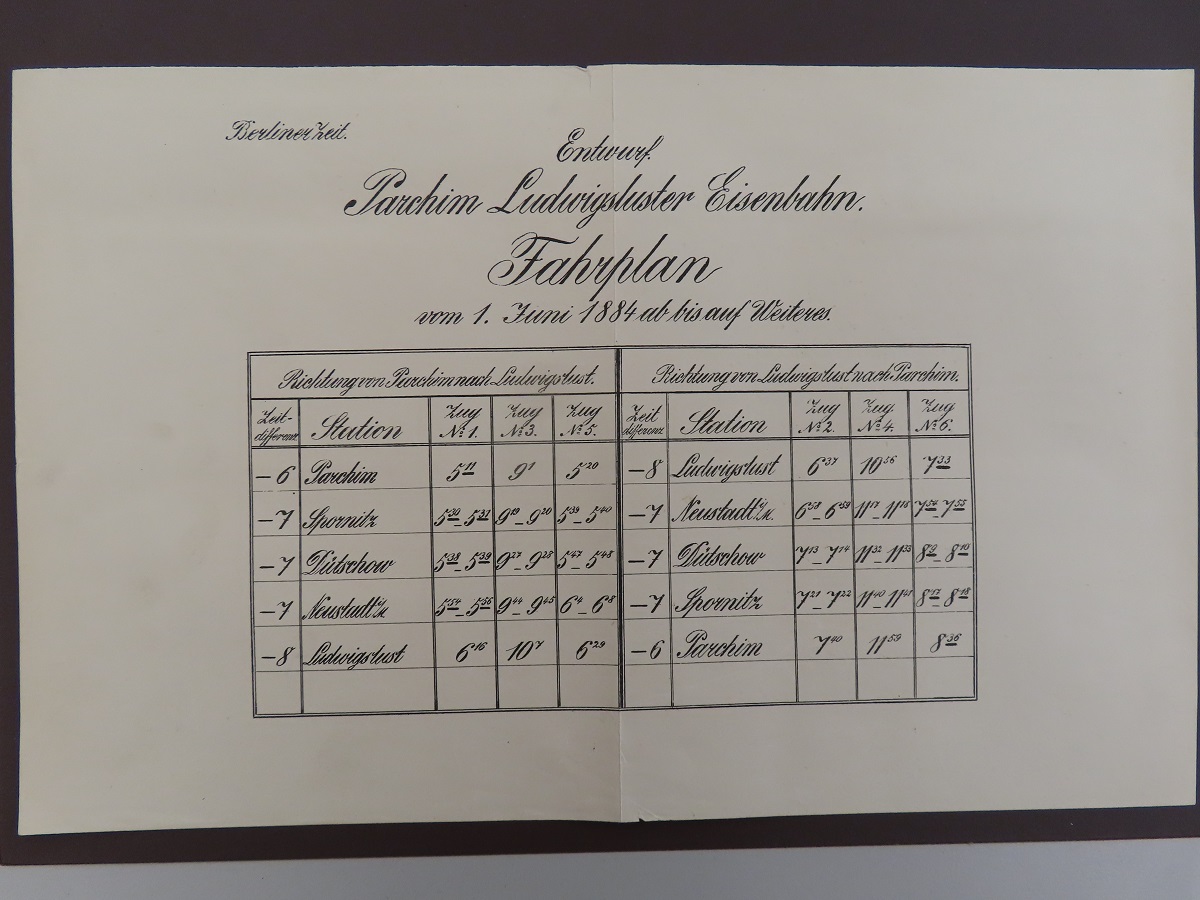 Berliner Zeit.
Entwurf.
Parchim Ludwigsluster Eisenbahn.
Fahrplan
vom 1. Juni 1884 ab bis auf Weiteres.
Richtung von Parchim nach Ludwigslust. Richtung von Ludwigslust nach Parchim.
Zeit- Station Zug Zug Zug Zeit Station Zug Zug Zug
differenz № 1. № 3. № 5. differenz № 2. № 4. № 6.
–6 Parchim 5 11 9 1 5 20 –8 Ludwigslust 6 37 10 56 7 33
–7 Spornitz 5 30 – 5 31 9 19 – 9 20 5 39 – 5 40 –7 Neustadt i/M. 6 58 – 6 59 11 17 – 11 18 7 54 – 7 55
–7 Dütschow 5 38 – 5 39 9 27 – 9 28 5 47 – 5 48 –7 Dütschow 7 13 – 7 14 11 32 – 11 33 8 9 – 8 10
–7 Neustadt i/M 5 54 – 5 56 9 44 – 9 45 6 4 – 6 8 –7 Spornitz 7 21 – 7 22 11 40 – 11 41 8 17 – 8 18
–8 Ludwigslust 6 16 10 7 6 29 –6 Parchim 7 40 11 59 8 36